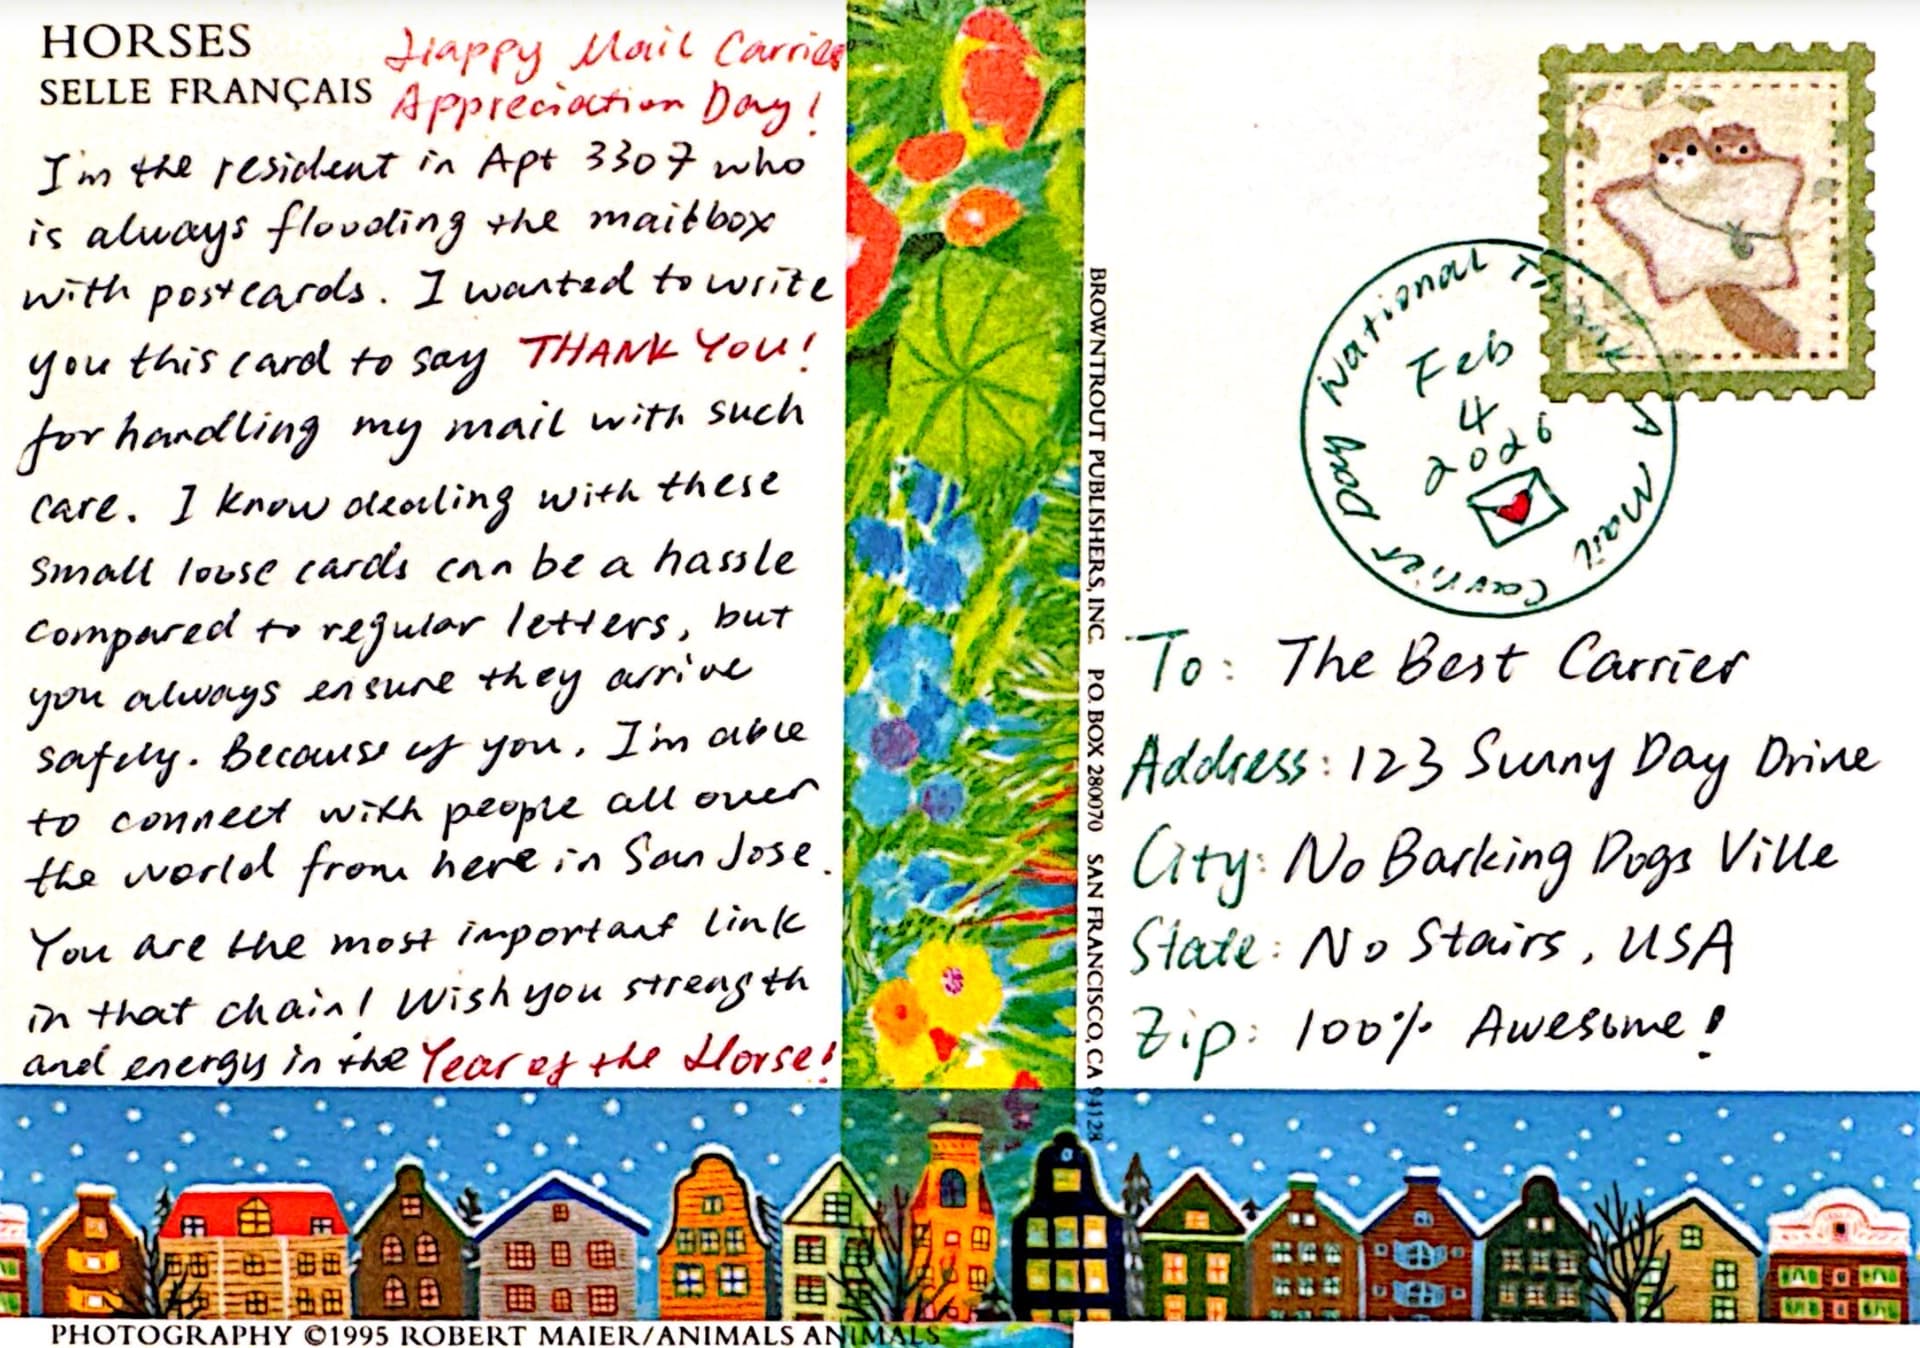 HORSES
SELLE FRANÇAIS
Happy Mail Carrier
Appreciation Day!
I'm the resident in Apt 3307 who
is always flooding the mailbox
with postcards. I wanted to write
you this card to say THANK YOU!
for handling my mail with such
care. I know dealing with these
small loose cards can be a hassle
compared to regular letters, but
you always ensure they arrive
safely. Because of you, I'm able
to connect with people all over
the world from here in San Jose.
You are the most important link
in that chain! Wish you strength
and energy in the Year of the Horse!
PHOTOGRAPHY ©1995 ROBERT MAIER/ANIMALS ANIMALS
BROWNTROUT PUBLISHERS, INC. P.O. BOX 280070 SAN FRANCISCO, CA 94128
National Thank A Mail Carrier Day
Feb
4
2026
To: The Best Carrier
Address: 123 Sunny Day Drive
City: No Barking Dogs Ville
State: No Stairs, USA
Zip: 100% Awesome!